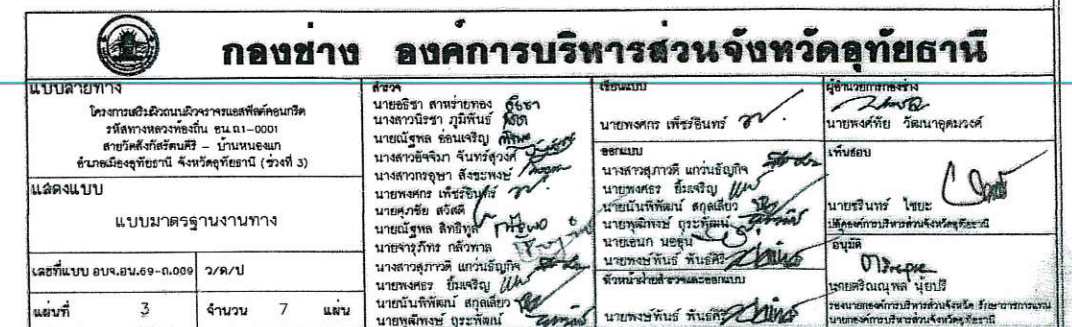 กองช่าง องค์การบริหารส่วนจังหวัดอุทัยธานี
แบบสายทาง
โครงการเสริมผิวถนนผิวจราจรแอสฟัลต์คอนกรีต
รหัสทางหลวงท้องถิ่น อน.ถ1-0001
สายวัดสังกัสรัตนคีรี - บ้านหนองแก
อำเภอเมืองอุทัยธานี จังหวัดอุทัยธานี (ช่วงที่ 3)
แสดงแบบ
แบบมาตรฐานงานทาง
เลขที่แบบ อบจ.อน.69-ถ.009
ว/ด/ป
แผ่นที่ 3 จำนวน 7 แผ่น
สำรวจ
นายอธิชา สาหร่ายทอง
นางสาวนิรชา ภูมิพันธ์
นายณัฐพล อ่อนเจริญ
นางสาวอัจจิมา จันทร์สุวงศ์
นางสาวกรอุษา สังขะพงษ์
นายพงศกร เพ็ชร์อินทร์
นายศุภชัย สวัสดี
นายณัฐพล สิทธิทูล
นายจารุภัทร กล้วพาล
นางสาวสุภาวดี แกว่นธัญกิจ
นายพงศธร ยิ้มเจริญ
นายนันทิพัฒน์ สกุลเลี่ยว
นายพุฒิพงษ์ ถุระพัฒน์
เขียนแบบ
นายพงศกร เพ็ชร์อินทร์
ออกแบบ
นางสาวสุภาวดี แกว่นธัญกิจ
นายพงศธร ยิ้มเจริญ
นายนันทิพัฒน์ สกุลเลี่ยว
นายพุฒิพงษ์ ถุระพัฒน์
นายเอนก นอขุน
นายพงษ์พันธ์ พันธคีรี
หัวหน้าฝ่ายสำรวจและออกแบบ
นายพงษ์พันธ์ พันธคีรี
ผู้อำนวยการกองช่าง
นายพงศ์ทัย วัฒนาอุดมวงศ์
เห็นชอบ
นายชรินทร์ ไชยะ
ปลัดองค์การบริหารส่วนจังหวัดอุทัยธานี
อนุมัติ
นายตริณณุพล นุ้ยปรี
รองนายกองค์การบริหารส่วนจังหวัด รักษาราชการแทน
นายกองค์การบริหารส่วนจังหวัดอุทัยธานี